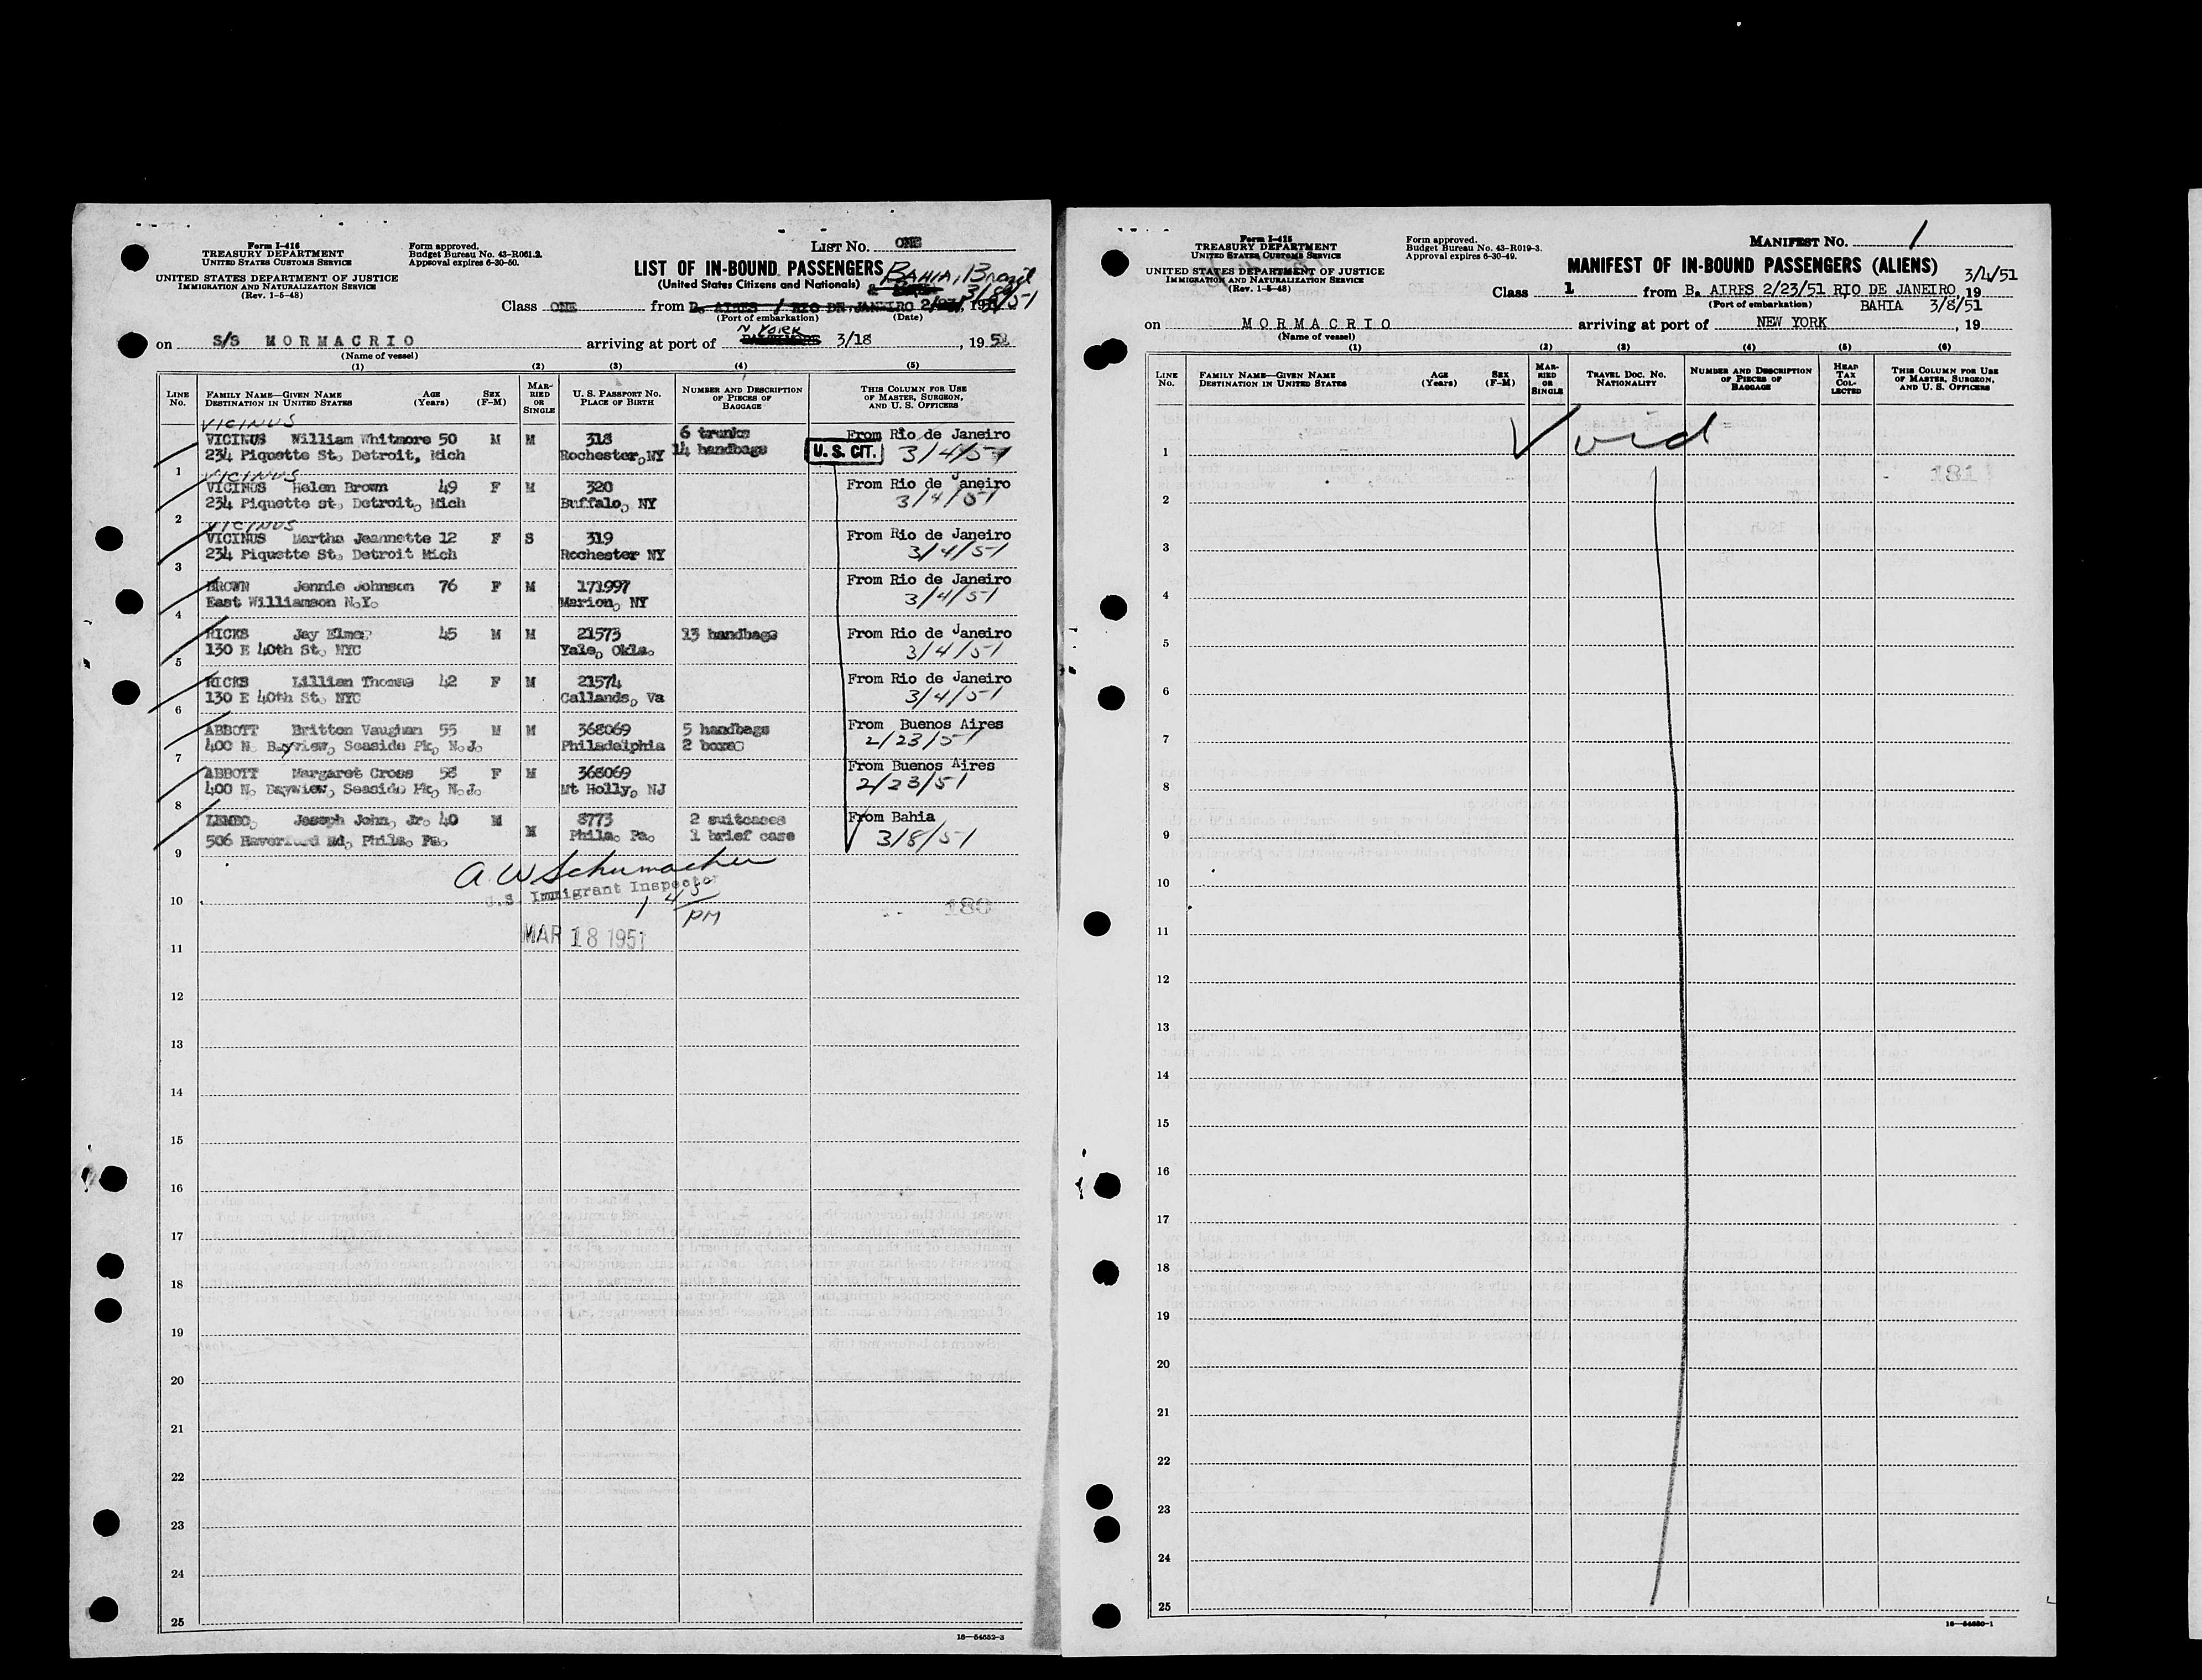 Form I-416
TREASURY DEPARTMENT
UNITED STATES CUSTOMS SERVICE
UNITED STATES DEPARTMENT OF JUSTICE
IMMIGRATION AND NATURALIZATION SERVICE
(Rev. 1-5-48)
Form approved.
Budget Bureau No. 43-R061.2.
Approval expires 6-30-50.
LIST No. ONE
LIST OF IN-BOUND PASSENGERS
(United States Citizens and Nationals)
BAHIA, Brazil
3/8/51
Class ONE from B. AIRES / RIO DE JANEIRO
(Port of embarkation) (Date)
on S/S MORMACRIO arriving at port of N. YORK BALTIMORE 3/18, 1951
(Name of vessel)
(1) (2) (3) (4) (5)
LINE No. FAMILY NAME—GIVEN NAME DESTINATION IN UNITED STATES AGE (Years) SEX (F-M) MARRIED OR SINGLE U. S. PASSPORT NO. PLACE OF BIRTH NUMBER AND DESCRIPTION OF PIECES OF BAGGAGE THIS COLUMN FOR USE OF MASTER, SURGEON, AND U. S. OFFICERS
VICINUS
VICINUS William Whitmore 50 M M 318 6 trunks From Rio de Janeiro
1 234 Piquette St. Detroit, Mich Rochester, NY 14 handbags U. S. CIT. 3/4/51
VICINUS
VICINUS Helen Brown 49 F M 320 From Rio de Janeiro
2 234 Piquette st. Detroit, Mich Buffalo, NY 3/4/51
VICINUS
VICINUS Martha Jeannette 12 F S 319 From Rio de Janeiro
3 234 Piquette St. Detroit Mich Rochester NY 3/4/51
BROWN Jennie Johnson 76 F M 171997 From Rio de Janeiro
4 East Williamson N.Y. Marion, NY 3/4/51
RICKS Jay Elmer 45 M M 21573 13 handbags From Rio de Janeiro
5 130 E 40th St. NYC Yale, Okla. 3/4/51
RICKS Lillian Thomas 42 F M 21574 From Rio de Janeiro
6 130 E 40th St. NYC Callands, Va 3/4/51
ABBOTT Britton Vaughan 55 M M 368069 5 handbags From Buenos Aires
7 400 N. Bayview, Seaside Pk, N.J. Philadelphia 2 boxes 2/23/51
ABBOTT Margaret Cross 58 F M 368069 From Buenos Aires
8 400 N. Bayview, Seaside Pk, N.J. Mt Holly, NJ 2/23/51
LEMBO, Joseph John, Jr. 40 M M 8773 2 suitcases From Bahia
9 506 Haverford Rd, Phila. Pa. Phila. Pa. 1 brief case 3/8/51
A W Schumacher
U.S. Immigrant Inspector
1 45 PM
10 180
MAR 18 1951
11
12
13
14
15
16
17
18
19
20
21
22
23
24
25
16—54652-3
Form I-415
TREASURY DEPARTMENT
UNITED STATES CUSTOMS SERVICE
UNITED STATES DEPARTMENT OF JUSTICE
IMMIGRATION AND NATURALIZATION SERVICE
(Rev. 1-5-48)
Form approved.
Budget Bureau No. 43-R019-3.
Approval expires 6-30-49.
MANIFEST No. 1
MANIFEST OF IN-BOUND PASSENGERS (ALIENS) 3/4/51
Class 1 from B. AIRES 2/23/51 RIO DE JANEIRO, 19
(Port of embarkation) BAHIA 3/8/51
on MORMACRIO arriving at port of NEW YORK, 19
(Name of vessel)
(1) (2) (3) (4) (5) (6)
LINE No. FAMILY NAME—GIVEN NAME DESTINATION IN UNITED STATES AGE (Years) SEX (F-M) MARRIED OR SINGLE TRAVEL DOC. NO. NATIONALITY NUMBER AND DESCRIPTION OF PIECES OF BAGGAGE HEAD TAX COLLECTED THIS COLUMN FOR USE OF MASTER, SURGEON, AND U. S. OFFICERS
Void
1
181
2
3
4
5
6
7
8
9
10
11
12
13
14
15
16
17
18
19
20
21
22
23
24
25
16—54650-1